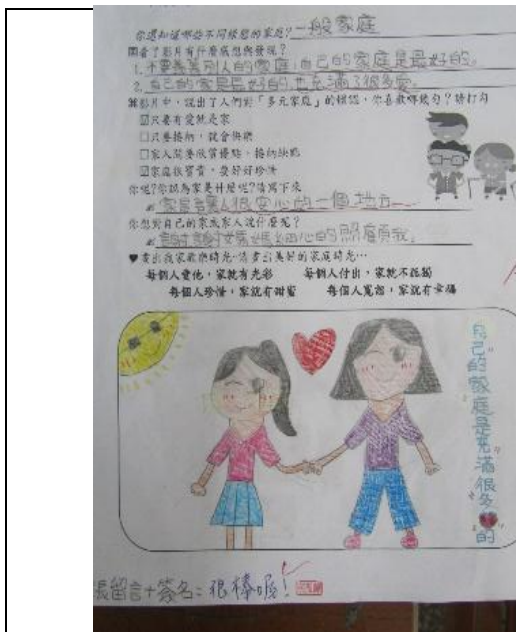 你還知道哪些不同樣態的家庭?一般家庭
閱看了影片有什麼感想與發現?
1.不要羨慕別人的家庭,自己的家庭是最好的。
2.自己的家是最好的,也充滿了很多愛。
影片中,說出了人們對「多元家庭」的
你喜歡哪幾句?請打勾
☑只要有愛就是家
□只要接納,就會快樂
□家人間要欣賞優點、接納缺點
☑家庭很寶貴,要好好珍惜
你呢?你認為家是什麼呢?請寫下來
家是讓人很安心的一個地方。
你想對自己的家或家人說什麼呢?
謝謝媽媽細心的照顧我。
♥畫出我家歡樂時光-請畫出美好的家庭時光…
每個人愛他,家就有光彩 每個人付出,家就不孤獨
每個人珍惜,家就有甜蜜 每個人寬恕,家就有幸福
自己的家庭是充滿很多♥的
長留言+簽名:很棒喔!